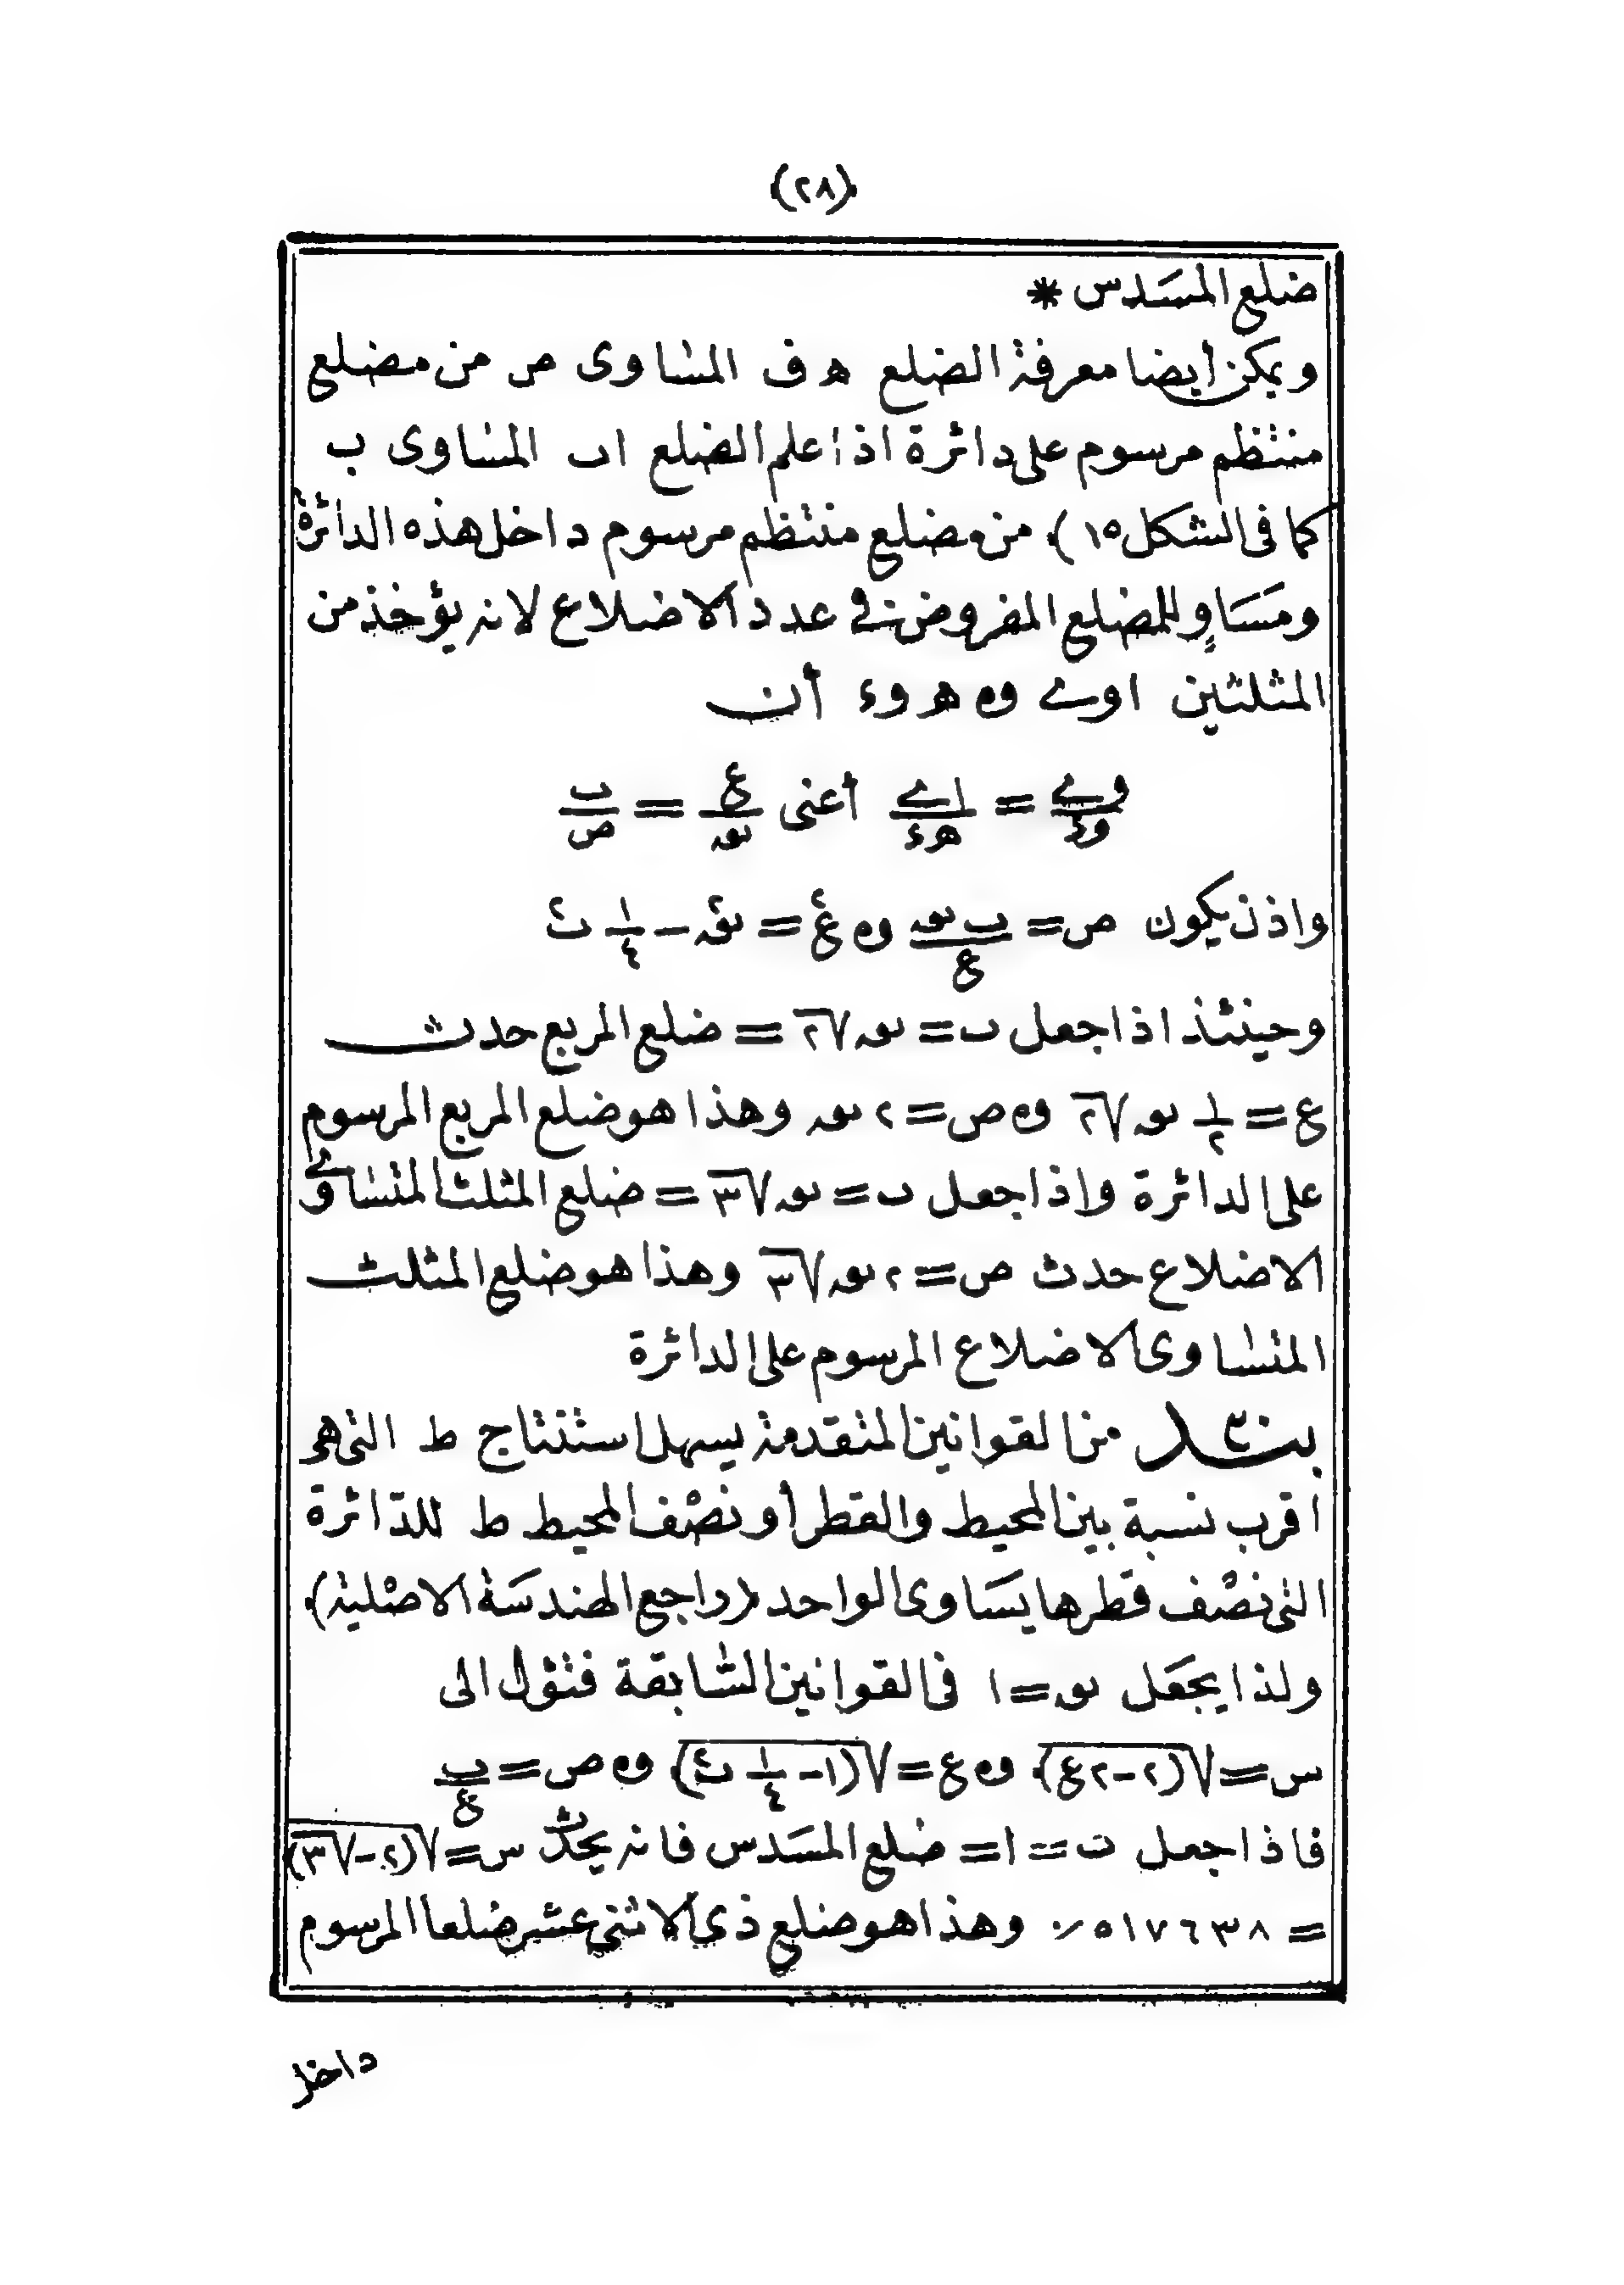 (٢٨)
ضلع المسدس *
ويمكن أيضا معرفة الضلع هـ ف المساوى ص من مضلع
منتظم مرسوم على دائرة اذا علم الضلع اب المساوى ب
كما فى الشكل ١٥) من مضلع منتظم مرسوم داخل هذه الدائرة
ومساوٍ للمضلع المفروض فى عدد الاضلاع لانه يؤخذ من
المثلثين اوے و ه هـ وء أن
وے/وء = اے/هـء أعنى ع/نو = ب/ص
واذن يكون ص = ب نو/ع و ه ع٢ = نو٢ - ١/٤ ب٢
وحينئذ اذا جعل ب = نو √٢ = ضلع المربع حدث
ع = ١/٢ نو √٢ و ه ص = ٢ نو وهذا هو ضلع المربع المرسوم
على الدائرة واذا جعل ب = نو √٣ = ضلع المثلث المتساوى
الاضلاع حدث ص = ٢ نو √٣ وهذا هو ضلع المثلث
المتساوى الاضلاع المرسوم على الدائرة
بند من القوانين المتقدمة يسهل استنتاج ط التى هو
اقرب نسبة بين المحيط والقطر أو نصف المحيط ط للدائرة
التى نصف قطرها يساوى الواحد (راجع الهندسة الاصلية)
ولذا يجعل نو = ١ فى القوانين السابقة فتؤل الى
س = √(٢-٢ع) و ه ع = √(١- ١/٤ ب٢) و ه ص = ب/ع
فاذا جعل ب = ١ = ضلع المسدس فانه يحدث س = √(٢-√٣)
= ٥١٧٦٣٨٪ وهذا هو ضلع ذى الاثنى عشر ضلعا المرسوم
داخل